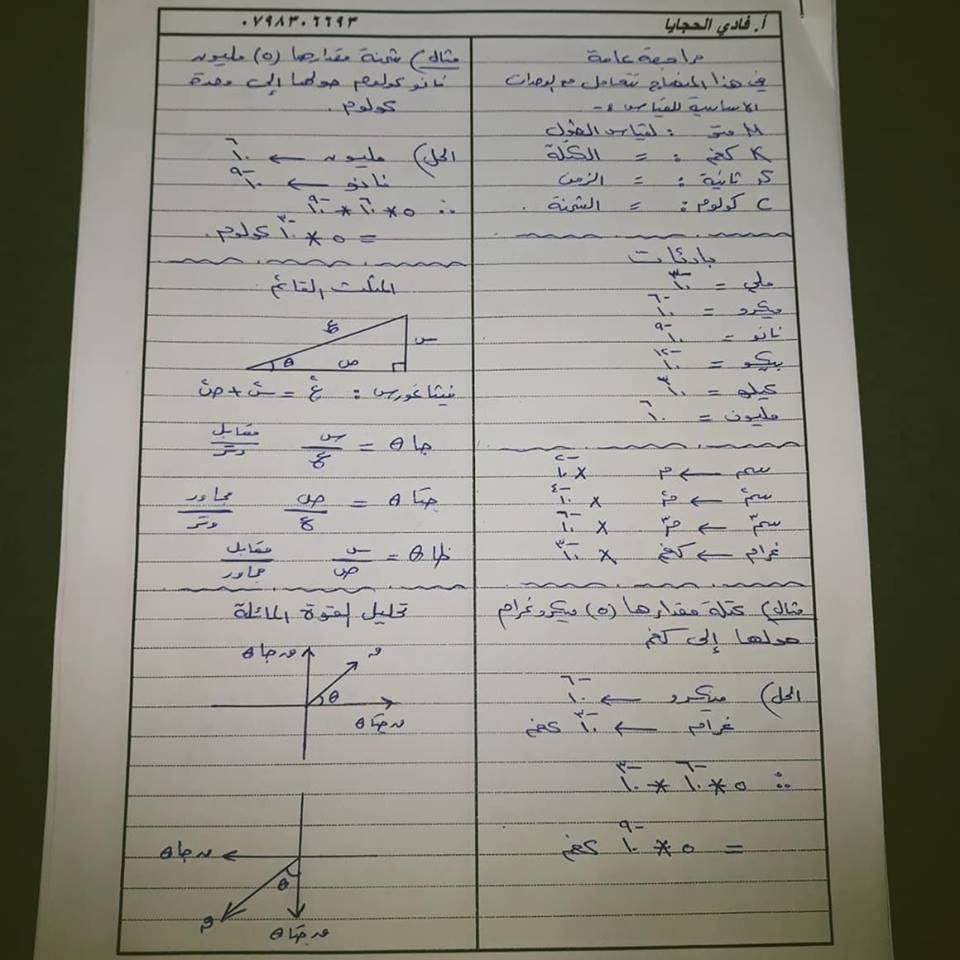 أ. فادي الحجايا
٠٧٩٨٣٠٦٦٩٣
مراجعة عامة
في هذا المنهاج نتعامل مع الوحدات
الاساسية للقياس :-
M متر : لقياس الطول
K كغم : = الكتلة
s ثانية : = الزمن
C كولوم : = الشحنة .
بادئات
ملي = ١٠⁻³
ميكرو = ١٠⁻⁶
نانو = ١٠⁻⁹
بيكو = ١٠⁻¹²
كيلو = ١٠³
مليون = ١٠⁶
سم ← م × ١٠⁻²
سم² ← م² × ١٠⁻⁴
سم³ ← م³ × ١٠⁻⁶
غرام ← كغم × ١٠⁻³
مثال) كتلة مقدارها (٥) ميكروغرام
حولها إلى كغم
الحل) ميكرو ← ١٠⁻⁶
غرام ← ١٠⁻³ كغم
∴ ٥ * ١٠⁻⁶ * ١٠⁻³
= ٥ * ١٠⁻⁹ كغم
مثال) شحنة مقدارها (٥) مليون
نانو كولوم حولها إلى وحدة
كولوم .
الحل) مليون ← ١٠⁶
نانو ← ١٠⁻⁹
∴ ٥ * ١٠⁶ * ١٠⁻⁹
= ٥ * ١٠⁻³ كولوم.
المثلث القائم
ع
س
θ ص
فيثاغورس : ع² = س² + ص²
جا θ = س/ع مقابل/وتر
جتا θ = ص/ع مجاور/وتر
ظا θ = س/ص مقابل/مجاور
تحليل القوة المائلة
ق جا θ
ق
θ
ق جتا θ
ق جا θ
θ
ق
ق جتا θ